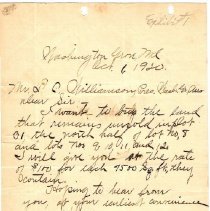 Exhibit 1
Washington Grove Md
Oct 6, 1920.
Mr I. D. Williamson,
near Sir
I want to buy the land
that remains unsold
31 the north half of lot no. 8
and lots No's 9, 10, 11, and 12
I will give you at the rate
of $100 for each 7500 sq ft, they
contain.
Hoping to hear from
you, at your earliest convenience